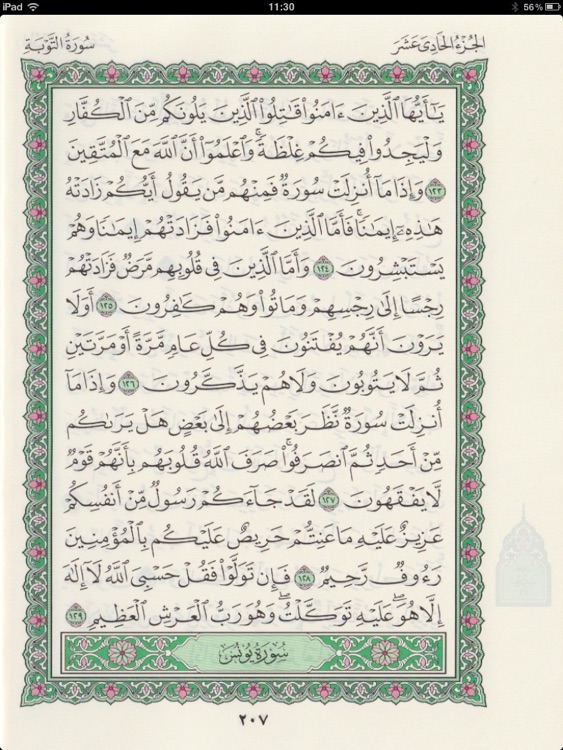 iPad 11:30 56%
سُورَةُ التَّوْبَةِ الجُزْءُ الحَادِىَ عَشَرَ
يَٰٓأَيُّهَا ٱلَّذِينَ ءَامَنُوا۟ قَٰتِلُوا۟ ٱلَّذِينَ يَلُونَكُم مِّنَ ٱلْكُفَّارِ
وَلْيَجِدُوا۟ فِيكُمْ غِلْظَةً ۚ وَٱعْلَمُوٓا۟ أَنَّ ٱللَّهَ مَعَ ٱلْمُتَّقِينَ
١٢٣ وَإِذَا مَآ أُنزِلَتْ سُورَةٌ فَمِنْهُم مَّن يَقُولُ أَيُّكُمْ زَادَتْهُ
هَٰذِهِۦٓ إِيمَٰنًا ۚ فَأَمَّا ٱلَّذِينَ ءَامَنُوا۟ فَزَادَتْهُمْ إِيمَٰنًا وَهُمْ
يَسْتَبْشِرُونَ ١٢٤ وَأَمَّا ٱلَّذِينَ فِى قُلُوبِهِم مَّرَضٌ فَزَادَتْهُمْ
رِجْسًا إِلَىٰ رِجْسِهِمْ وَمَاتُوا۟ وَهُمْ كَٰفِرُونَ ١٢٥ أَوَلَا
يَرَوْنَ أَنَّهُمْ يُفْتَنُونَ فِى كُلِّ عَامٍ مَّرَّةً أَوْ مَرَّتَيْنِ
ثُمَّ لَا يَتُوبُونَ وَلَا هُمْ يَذَّكَّرُونَ ١٢٦ وَإِذَا مَآ
أُنزِلَتْ سُورَةٌ نَّظَرَ بَعْضُهُمْ إِلَىٰ بَعْضٍ هَلْ يَرَىٰكُم
مِّنْ أَحَدٍ ثُمَّ ٱنصَرَفُوا۟ ۚ صَرَفَ ٱللَّهُ قُلُوبَهُم بِأَنَّهُمْ قَوْمٌ
لَّا يَفْقَهُونَ ١٢٧ لَقَدْ جَآءَكُمْ رَسُولٌ مِّنْ أَنفُسِكُمْ
عَزِيزٌ عَلَيْهِ مَا عَنِتُّمْ حَرِيصٌ عَلَيْكُم بِٱلْمُؤْمِنِينَ
رَءُوفٌ رَّحِيمٌ ١٢٨ فَإِن تَوَلَّوْا۟ فَقُلْ حَسْبِىَ ٱللَّهُ لَآ إِلَٰهَ
إِلَّا هُوَ ۖ عَلَيْهِ تَوَكَّلْتُ ۖ وَهُوَ رَبُّ ٱلْعَرْشِ ٱلْعَظِيمِ ١٢٩
سُورَةُ يُونُسَ
٢٠٧